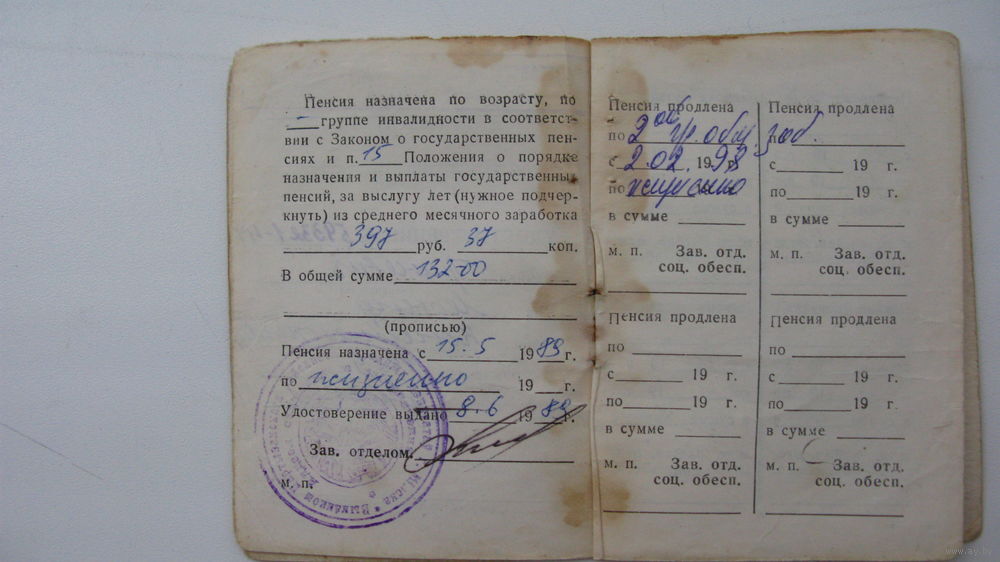 Пенсия назначена по возрасту, по
— группе инвалидности в соответст-
вии с Законом о государственных пен-
сиях и п. 15 Положения о порядке
назначения и выплаты государственных
пенсий, за выслугу лет (нужное подчер-
кнуть) из среднего месячного заработка
397 руб. 37 коп.
В общей сумме 132-00
(прописью)
Пенсия назначена с 15.5 1989 г.
по жизненно 19 г.
Удостоверение выдано 8.6 1989 г.
Зав. отделом.
м. п.
Пенсия продлена
по 2ой гр. общ. заб.
с 2.02. 1998 г.
по жизненно
в сумме
м. п. Зав. отд.
соц. обесп.
Пенсия продлена
по
с 19 г.
по 19 г.
в сумме
м. п. Зав. отд.
соц. обесп.
Пенсия продлена
по
с 19 г.
по 19 г.
в сумме
м. п. Зав. отд.
соц. обесп.
Пенсия продлена
по
с 19 г.
по 19 г.
в сумме
м. п. Зав. отд.
соц. обесп.
www.ay.by